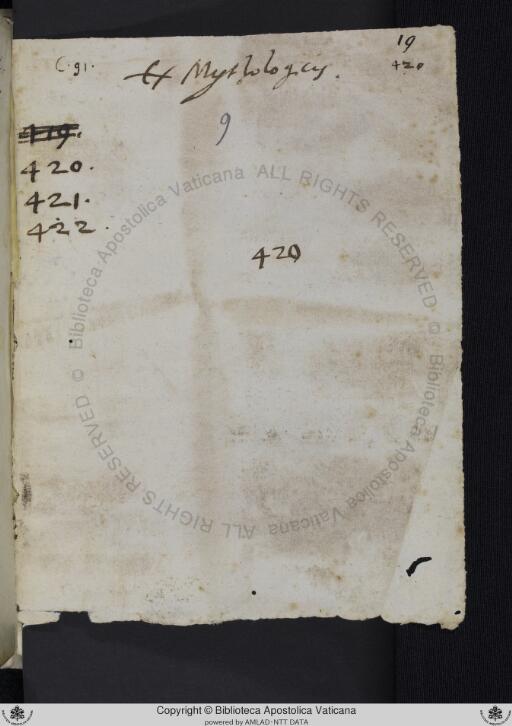 19
420
C. 91.
Ex Mythologicis.
9
419.
420.
421.
422.
420
Biblioteca Apostolica Vaticana ALL RIGHTS RESERVED ©
Biblioteca Apostolica Vaticana ALL RIGHTS RESERVED ©
Copyright © Biblioteca Apostolica Vaticana
powered by AMLAD-NTT DATA